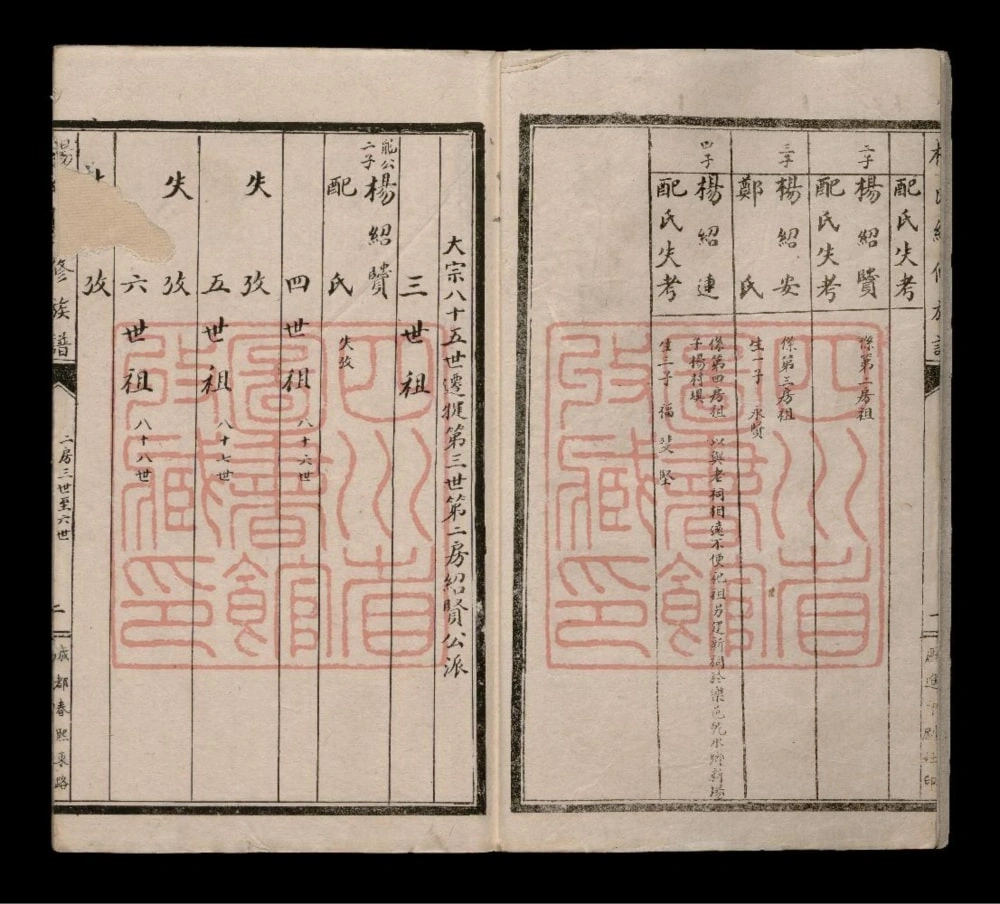 配氏失考
二子
楊紹贒
係第二房祖
配氏失考
三子
楊紹安
係第三房祖
鄭氏
生一子 永贒
四子
楊紹連
係第四房祖 以與老祠相遠不便祀祖另建新祠於樂邑
子楊村壩
配氏失考
生三子 福 斐 堅
大宗八十五世遷犍第三世第二房紹賢公派
三世祖
能公
二子
楊紹贒
配氏
失攷
四世祖 八十六世
失攷
五世祖 八十七世
失攷
六世祖 八十八世
攷
修族譜
二房三世至六世
二
成都春熙東路
四川省
圖書館
收藏印
四川省
圖書館
收藏印